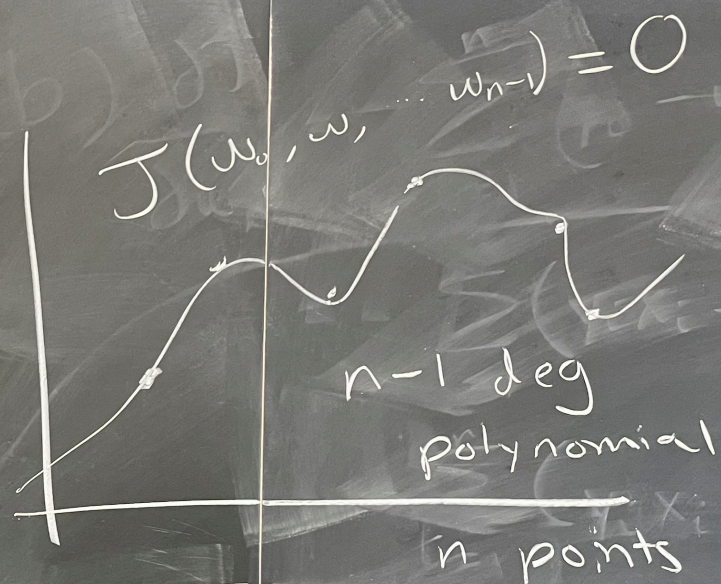 J(w₀, w, ... wₙ₋₁) = 0
n-1 deg
polynomial
n points